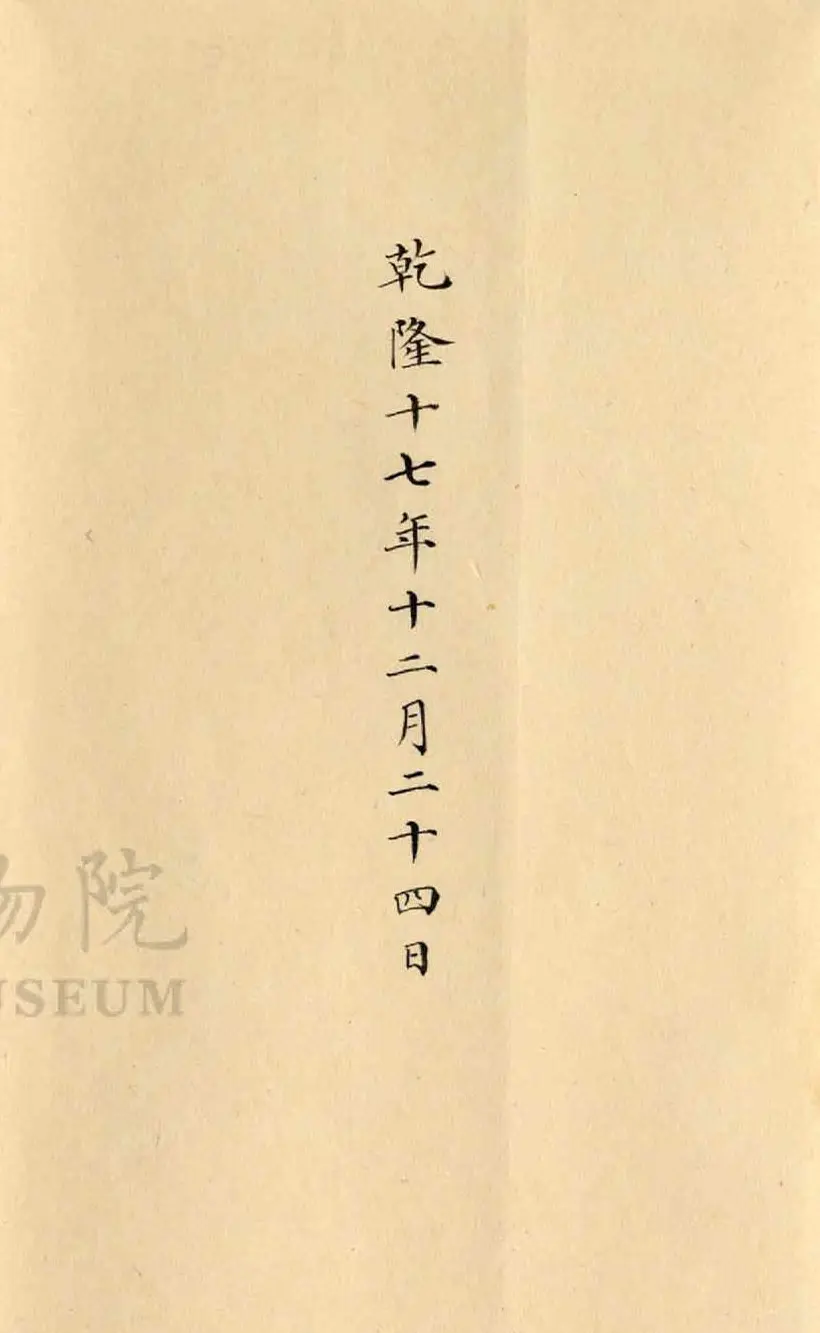 乾隆十七年十二月二十四日
院
USEUM